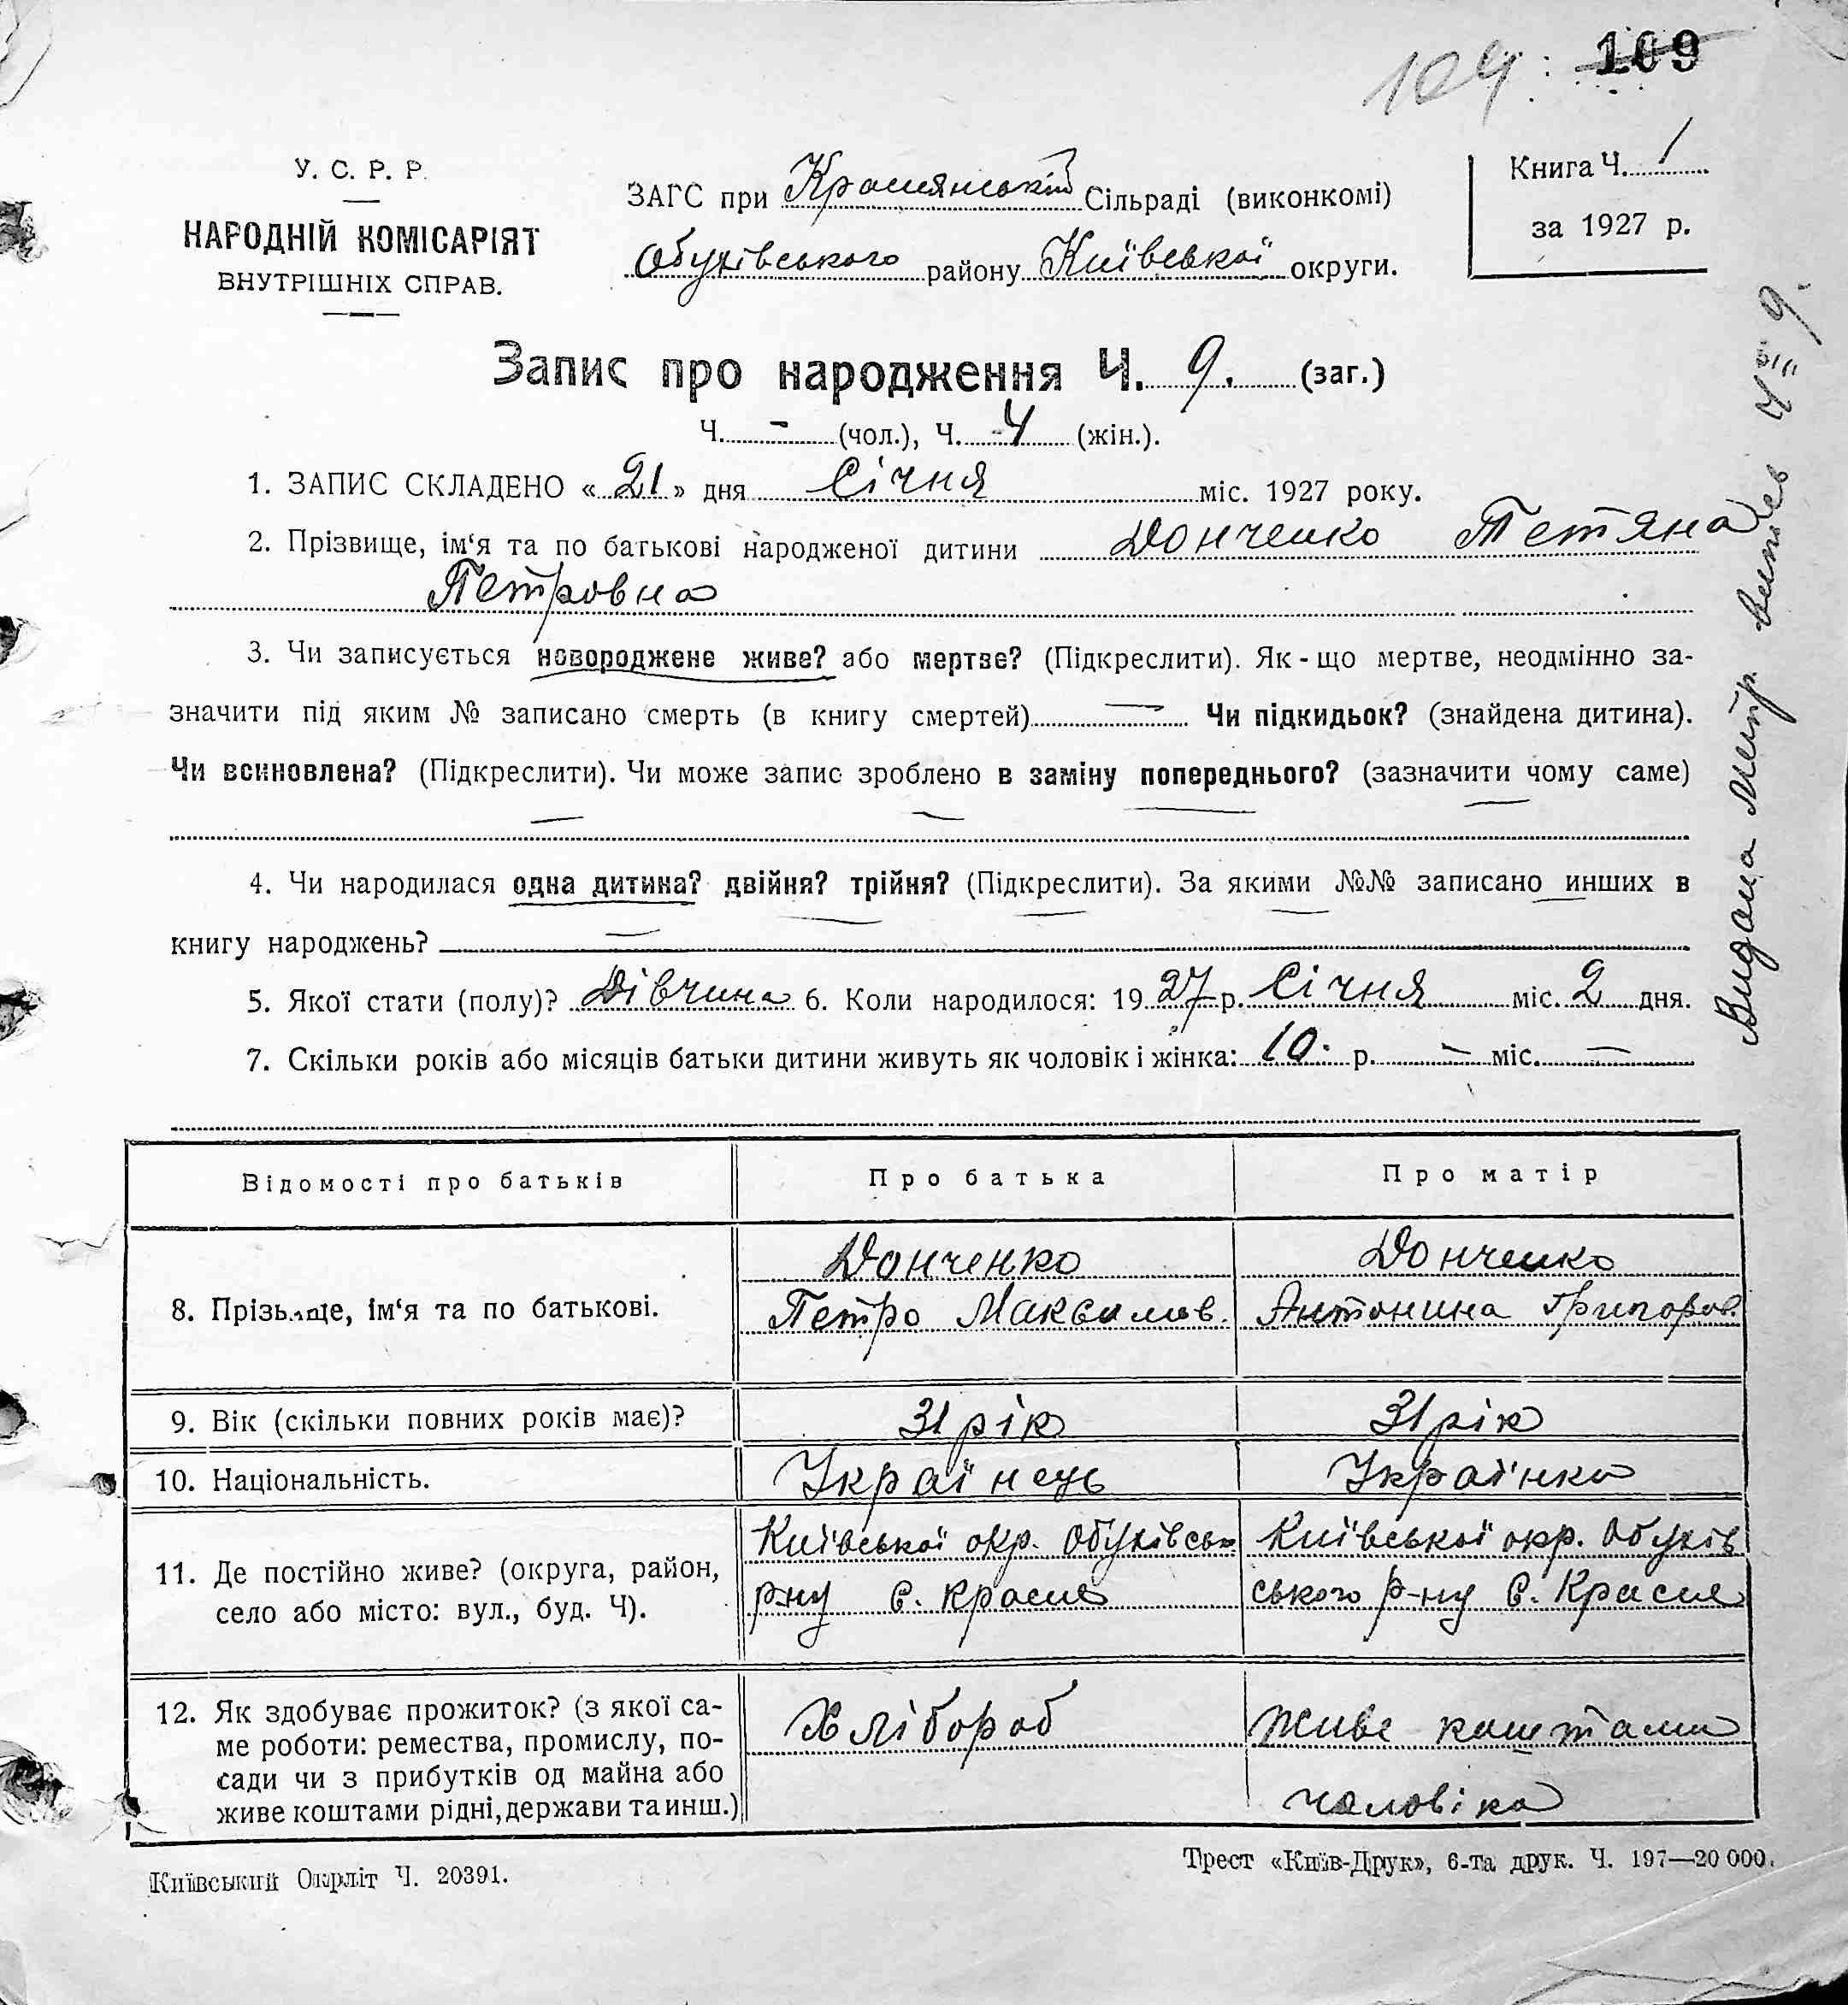 104 109
У. С. Р. Р.
НАРОДНІЙ КОМІСАРІЯТ
ВНУТРІШНІХ СПРАВ.
ЗАГС при Краснянській Сільраді (виконкомі)
Обухівського району Київської округи.
Книга Ч. 1
за 1927 р.
Запис про народження Ч. 9. (заг.)
Ч. - (чол.), Ч. 4 (жін.).
1. ЗАПИС СКЛАДЕНО «21» дня Січня міс. 1927 року.
2. Прізвище, ім‘я та по батькові народженої дитини Донченко Тетяна
Петровна
3. Чи записується новороджене живе? або мертве? (Підкреслити). Як-що мертве, неодмінно за-
значити під яким № записано смерть (в книгу смертей) — Чи підкидьок? (знайдена дитина).
Чи всиновлена? (Підкреслити). Чи може запис зроблено в заміну попереднього? (зазначити чому саме)
— — — —
4. Чи народилася одна дитина? двійня? трійня? (Підкреслити). За якими №№ записано инших в
книгу народжень? —
5. Якої стати (полу)? Дівчина 6. Коли народилося: 1927 р. Січня міс. 2 дня.
7. Скільки років або місяців батьки дитини живуть як чоловік і жінка: 10. р. — міс. —
Відомості про батьків Про батька Про матір
8. Прізвище, ім‘я та по батькові.
Донченко
Петро Максимов.
Донченко
Антонина Григоров.
9. Вік (скільки повних років має)? 31 рік 31 рік
10. Національність. Українець Українка
11. Де постійно живе? (округа, район,
село або місто: вул., буд. Ч).
Київської окр. Обухівськ
р-ну с. Красне
Київської окр. Обухів
ського р-ну с. Красне
12. Як здобуває прожиток? (з якої са-
ме роботи: ремества, промислу, по-
сади чи з прибутків од майна або
живе коштами рідні, держави та инш.)
Хлібороб
Живе коштами
чоловіка
Київський Окрліт Ч. 20391.
Трест «Київ-Друк», 6-та друк. Ч. 197—20 000.
Видана метр. випись